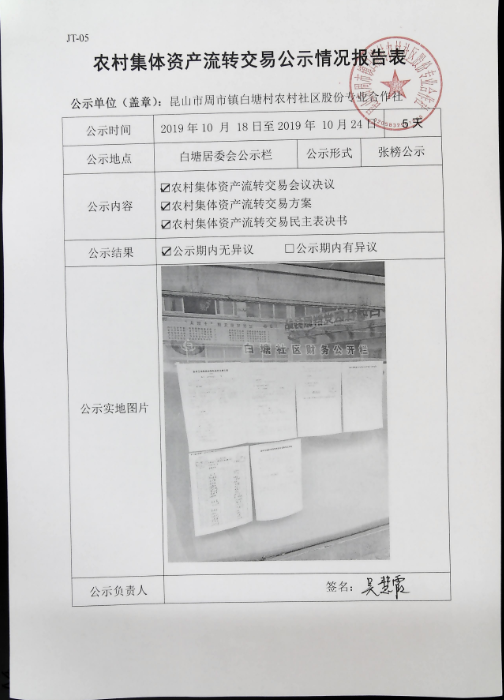 JT-05
农村集体资产流转交易公示情况报告表
公示单位（盖章）：昆山市周市镇白塘村农村社区股份专业合作社
公示时间 2019 年 10 月 18 日至 2019 年 10 月 24 日 5 天
公示地点 白塘居委会公示栏 公示形式 张榜公示
公示内容
☑农村集体资产流转交易会议决议
☑农村集体资产流转交易方案
☑农村集体资产流转交易民主表决书
公示结果 ☑公示期内无异议 □公示期内有异议
公示实地图片
白塘社区财务公开栏
公示负责人 签名：吴慧霞